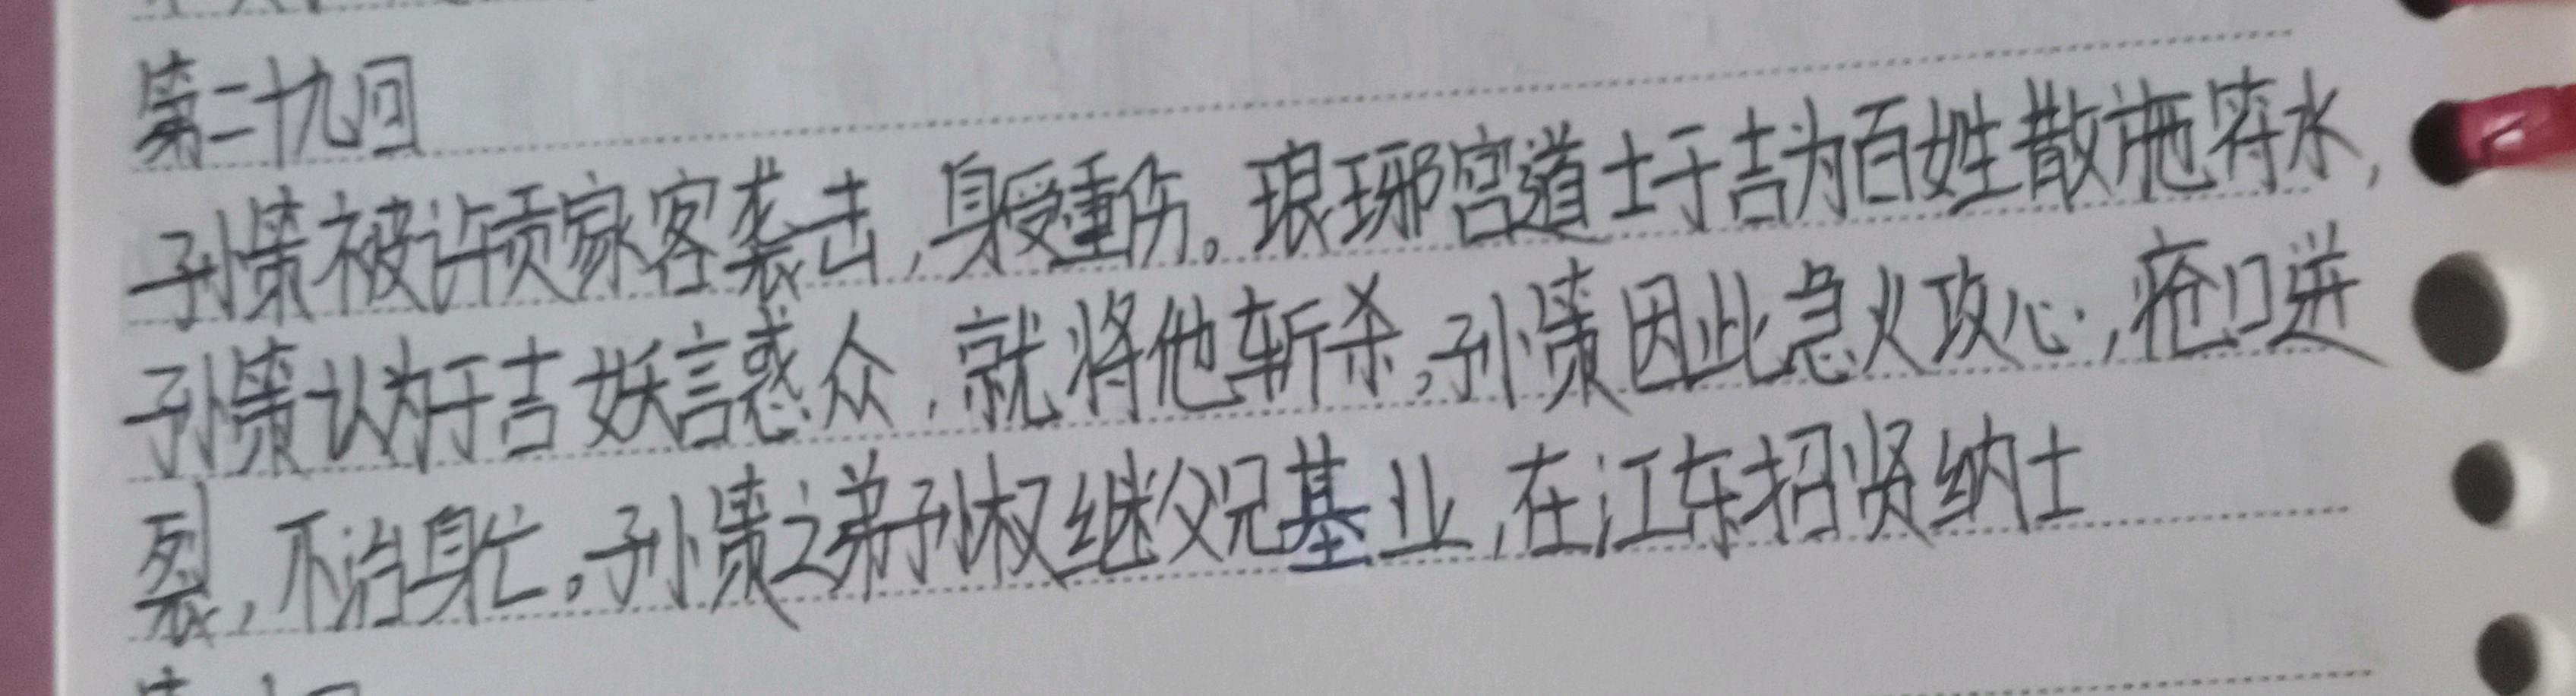 第二十九回
孙策被许贡家客袭击,身受重伤。琅琊宫道士于吉为百姓散施符水,
孙策认为于吉妖言惑众,就将他斩杀,孙策因此急火攻心,疮口迸
裂,不治身亡。孙策之弟孙权继父兄基业,在江东招贤纳士